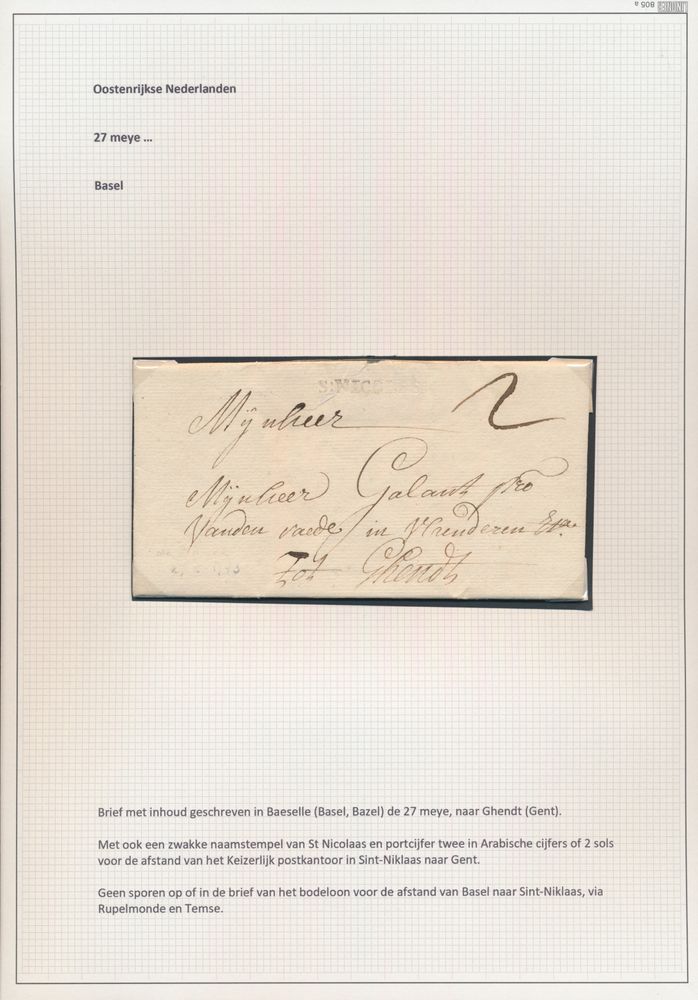 LINDNER 805 a
Oostenrijkse Nederlanden
27 meye ...
Basel
S:NICOLAS
2
Mÿnheer
Mÿnheer Galant pro
Vanden raede in Vlaenderen &ra.
Tot Ghendt
Brief met inhoud geschreven in Baeselle (Basel, Bazel) de 27 meye, naar Ghendt (Gent).
Met ook een zwakke naamstempel van St Nicolaas en portcijfer twee in Arabische cijfers of 2 sols
voor de afstand van het Keizerlijk postkantoor in Sint-Niklaas naar Gent.
Geen sporen op of in de brief van het bodeloon voor de afstand van Basel naar Sint-Niklaas, via
Rupelmonde en Temse.